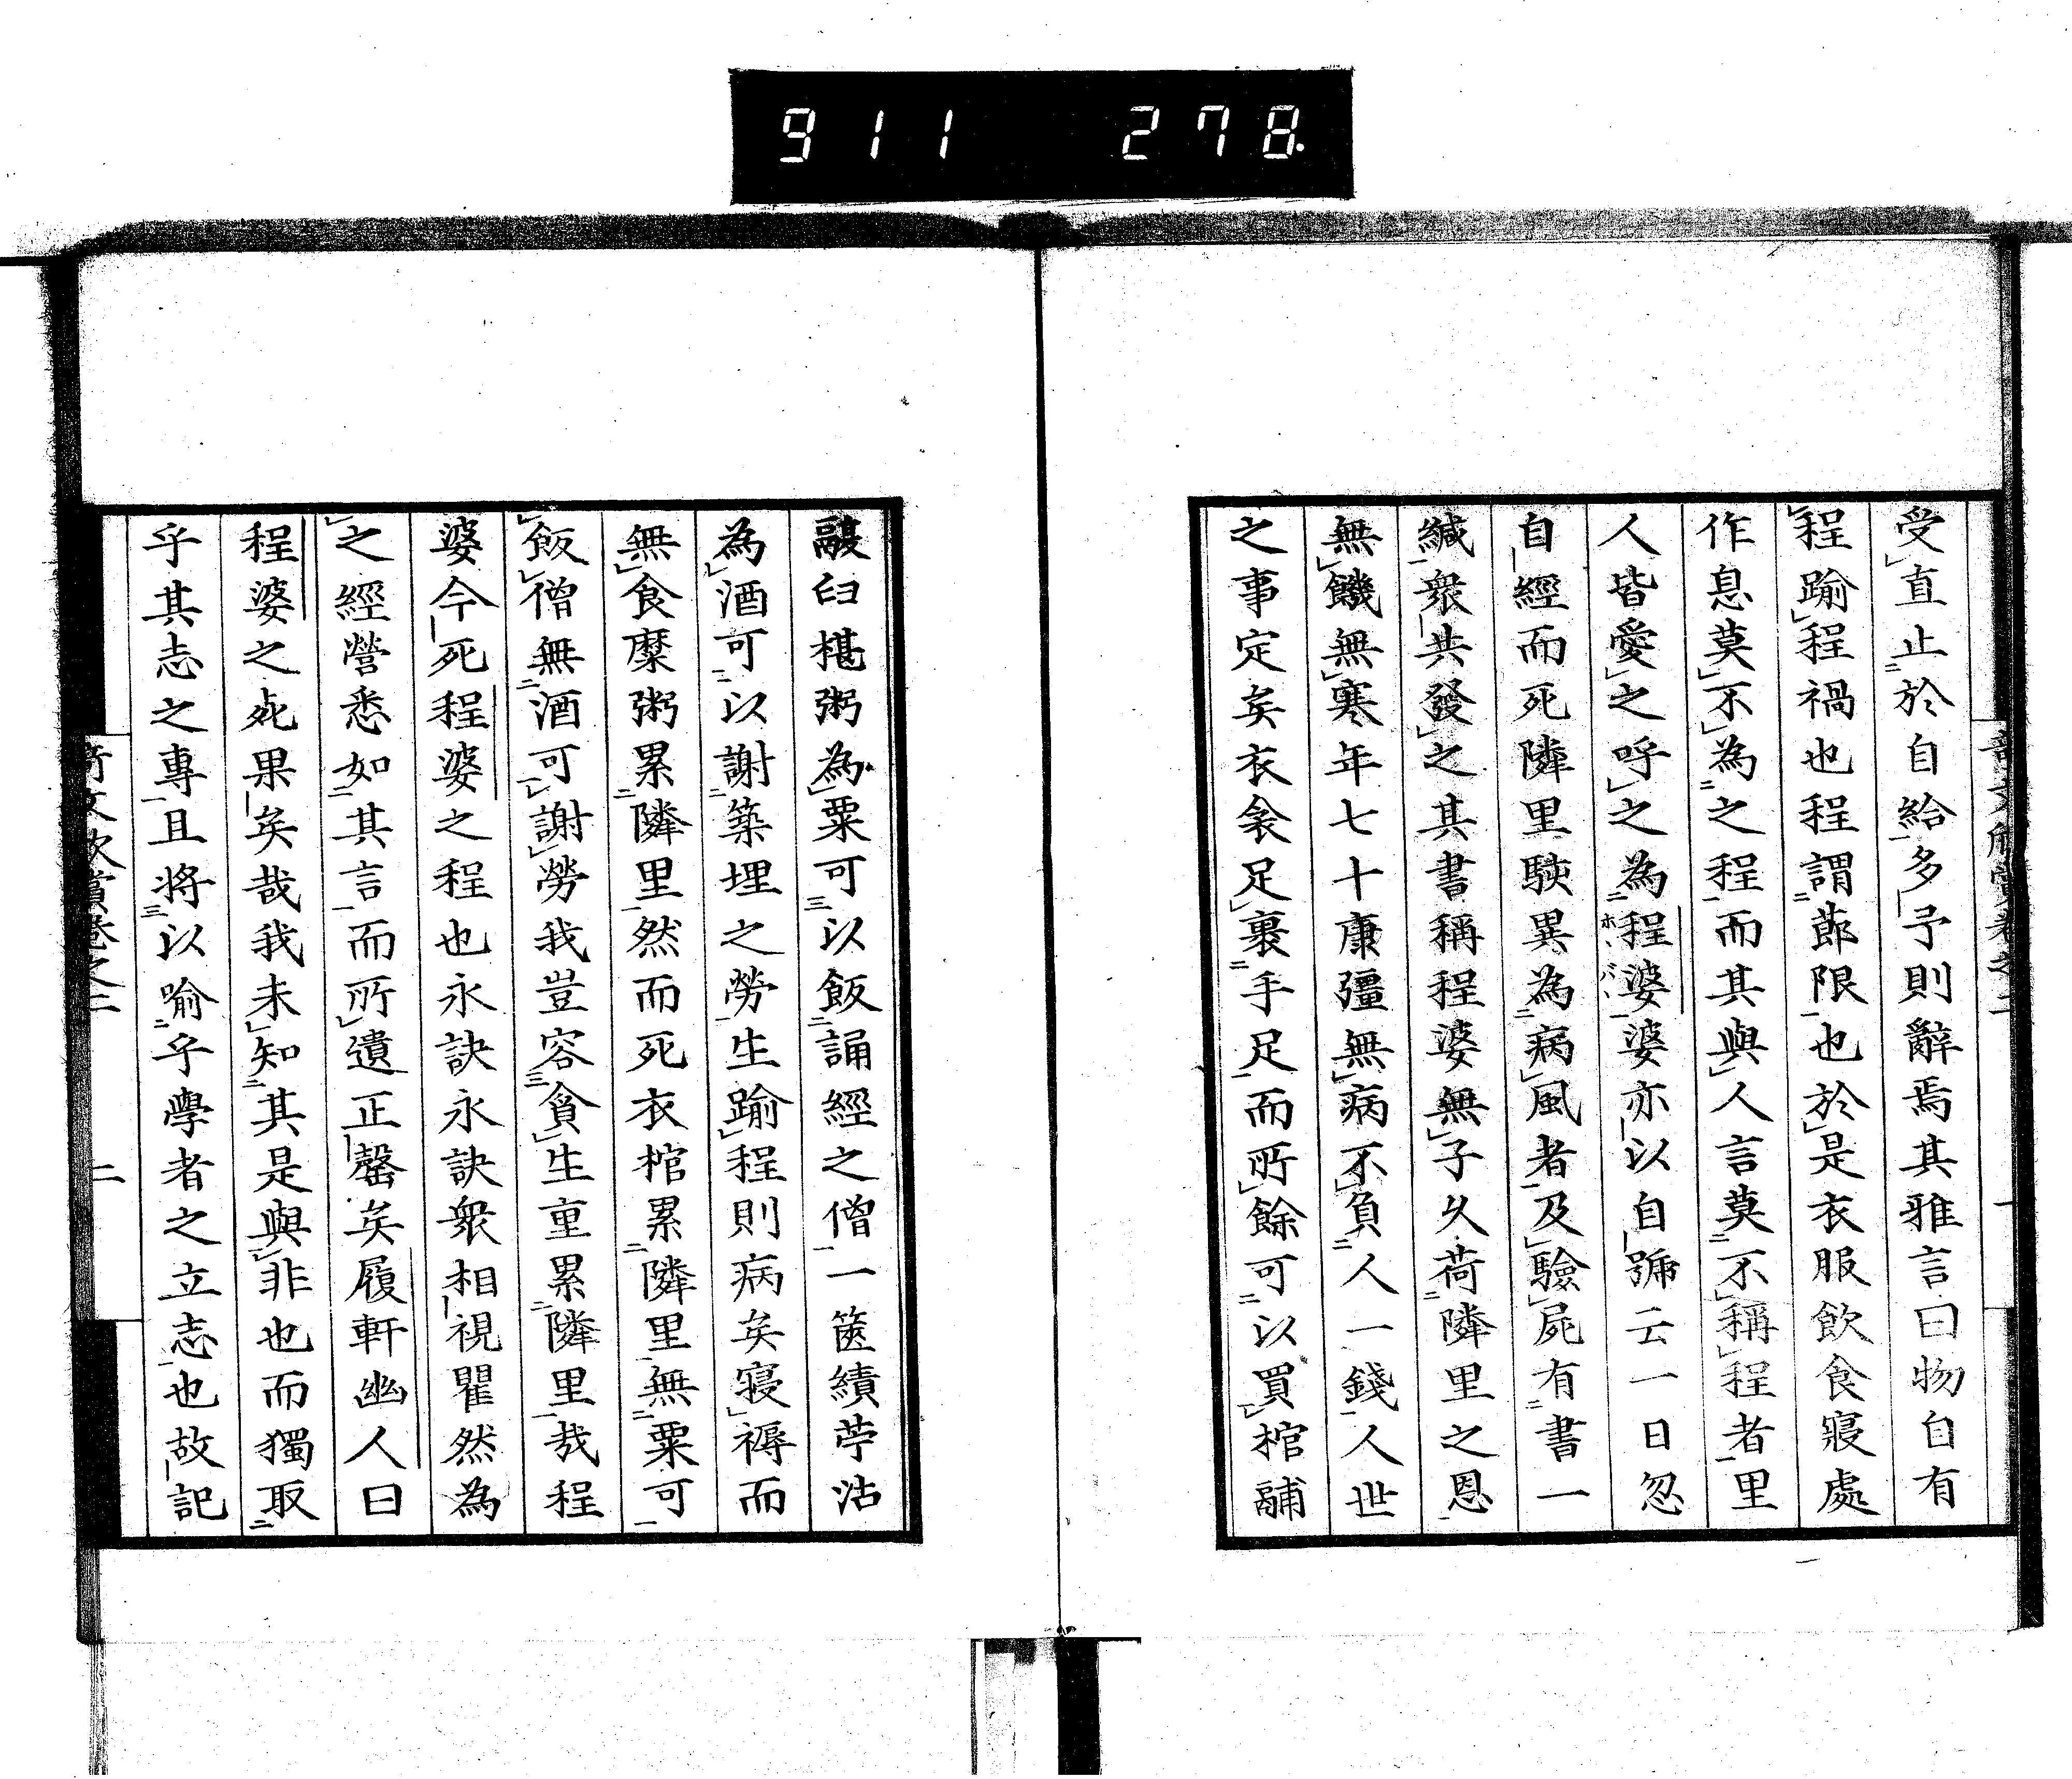 911 278
受直止於自給多予則辭焉其雅言曰物自有
程踰程禍也程謂節限也於是衣服飲食寢處
作息莫不為之程而其與人言莫不稱程者里
人皆愛之呼之為程婆婆亦以自號云一日忽
自經而死隣里駛異為病風者及驗屍有書一
緘衆共發之其書稱程婆無子久荷隣里之恩
無饑無寒年七十康彊無病不負人一錢人世
之事定矣衣衾足裹手足而所餘可以買棺鬴
鬷臼椹粥為粟可以飯誦經之僧一篋績苧沽
為酒可以謝築埋之勞生踰程則病矣寢褥而
無食糜粥累隣里然而死衣棺累隣里無粟可
飯僧無酒可謝勞我豈容貪生重累隣里哉程
婆今死程婆之程也永訣永訣衆相視瞿然為
之經營悉如其言而所遺正罄矣履軒幽人曰
程婆之死果矣哉我未知其是與非也而獨取
乎其志之專且將以喻乎學者之立志也故記
奇文欣賞卷之二 二